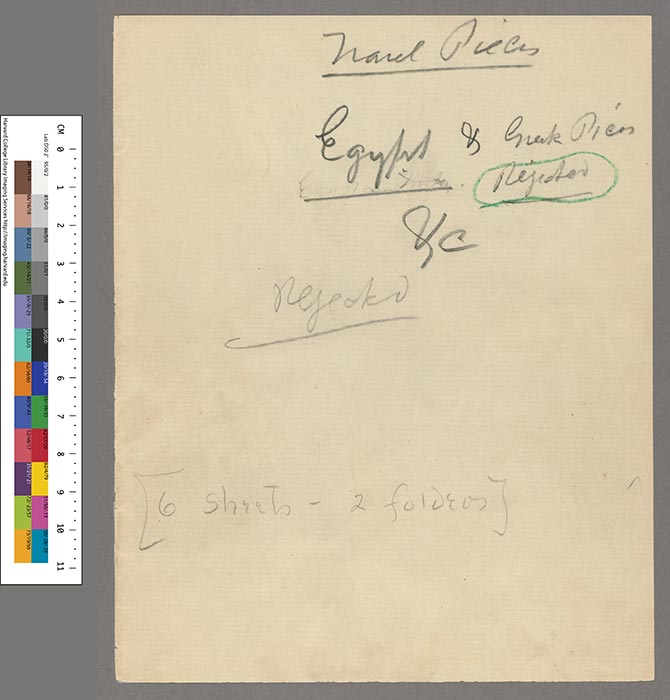 Travel Pieces
Egypt & Greek Pieces
Rejected
&c
Rejected
[6 sheets - 2 folders]
CM 0 1 2 3 4 5 6 7 8 9 10 11
Harvard College Library Imaging Services http://imaging.harvard.edu